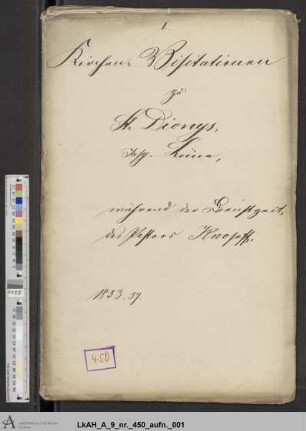 1
Kirchen-Visitationen
zu
St. Dionys,
Insp. Lüne,
während der Dienstzeit
des Pastors
1833. 37.
450
LkAH_A_9_nr._450_aufn._001